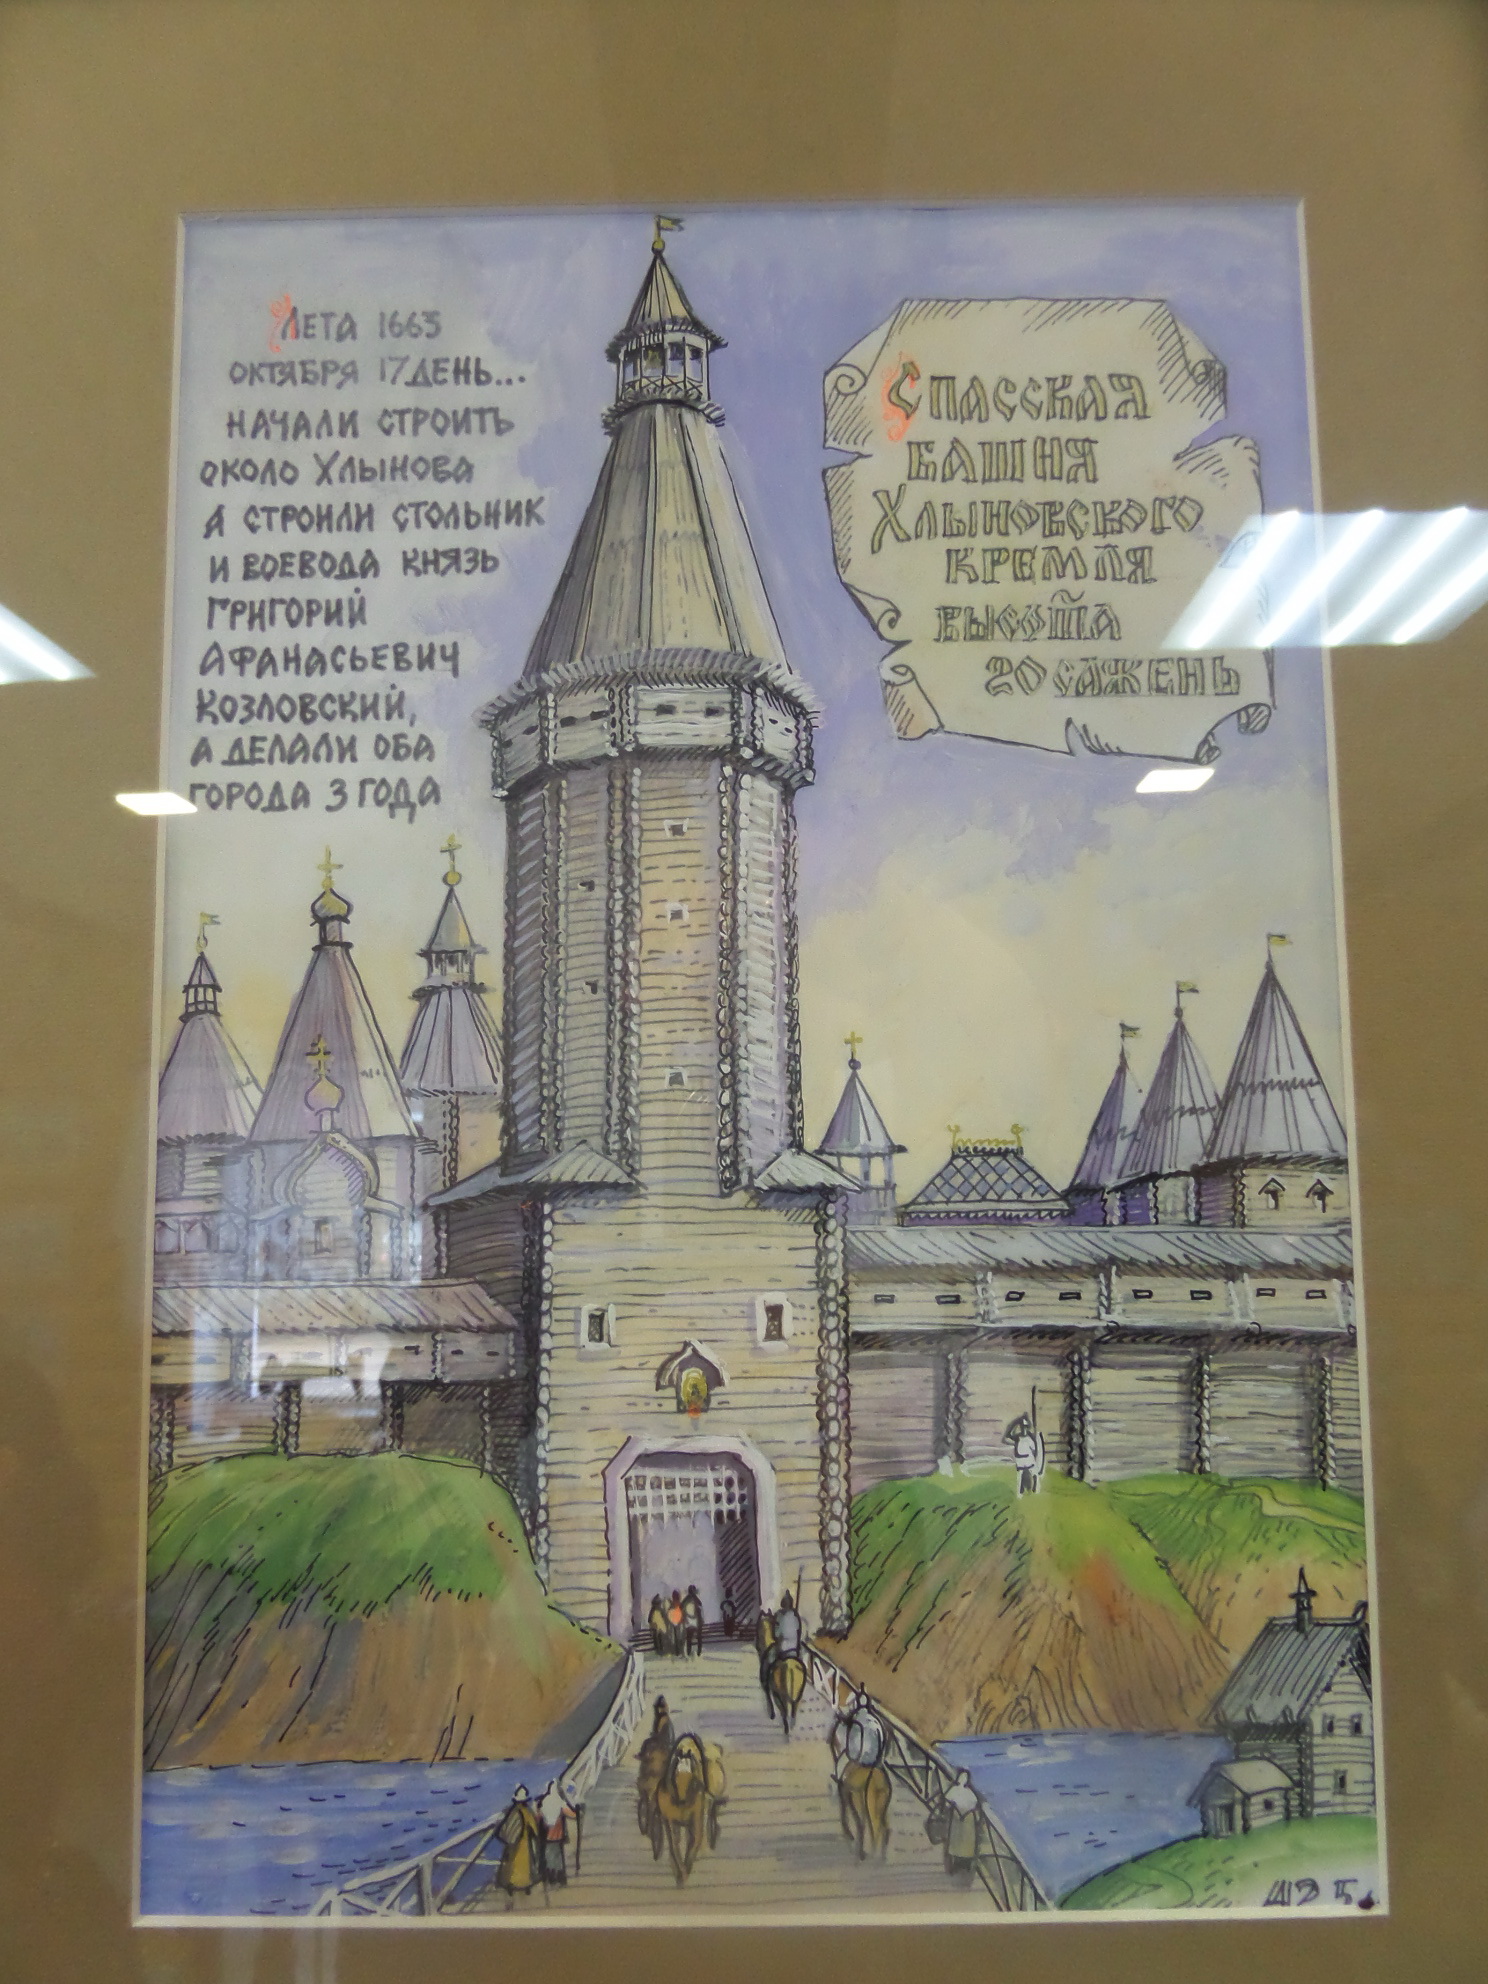 Лета 1663
октября 17 день...
начали строить
около Хлынова
а строили стольник
и воевода князь
Григорий
Афанасьевич
Козловский,
а делали оба
города 3 года
Спасская
башня
Хлыновского
кремля
высота
20 сажень